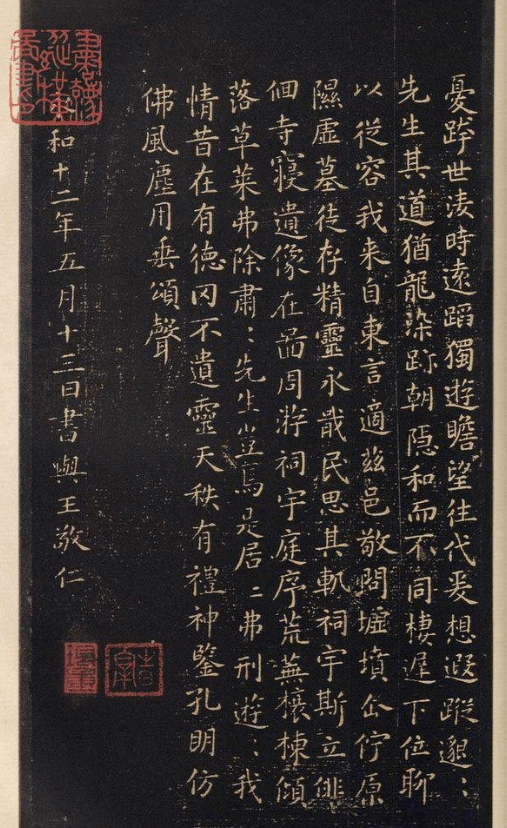 憂跨世淩時遠蹈獨遊瞻望往代爰想遐蹤邈〻
先生其道猶龍染跡朝隱和而不同棲遲下位聊
以從容我来自東言適茲邑敬問墟墳企佇原
隰虛墓徒存精靈永戢民思其軌祠宇斯立俳
佪寺寢遺像在啚周游祠宇庭序荒蕪榱棟傾
落草莱弗除肅〻先生豈焉是居〻弗刑遊〻我
情昔在有德罔不遺靈天秩有禮神鑒孔明仿
佛風塵用垂頌聲
和十二年五月十三日書與王敬仁